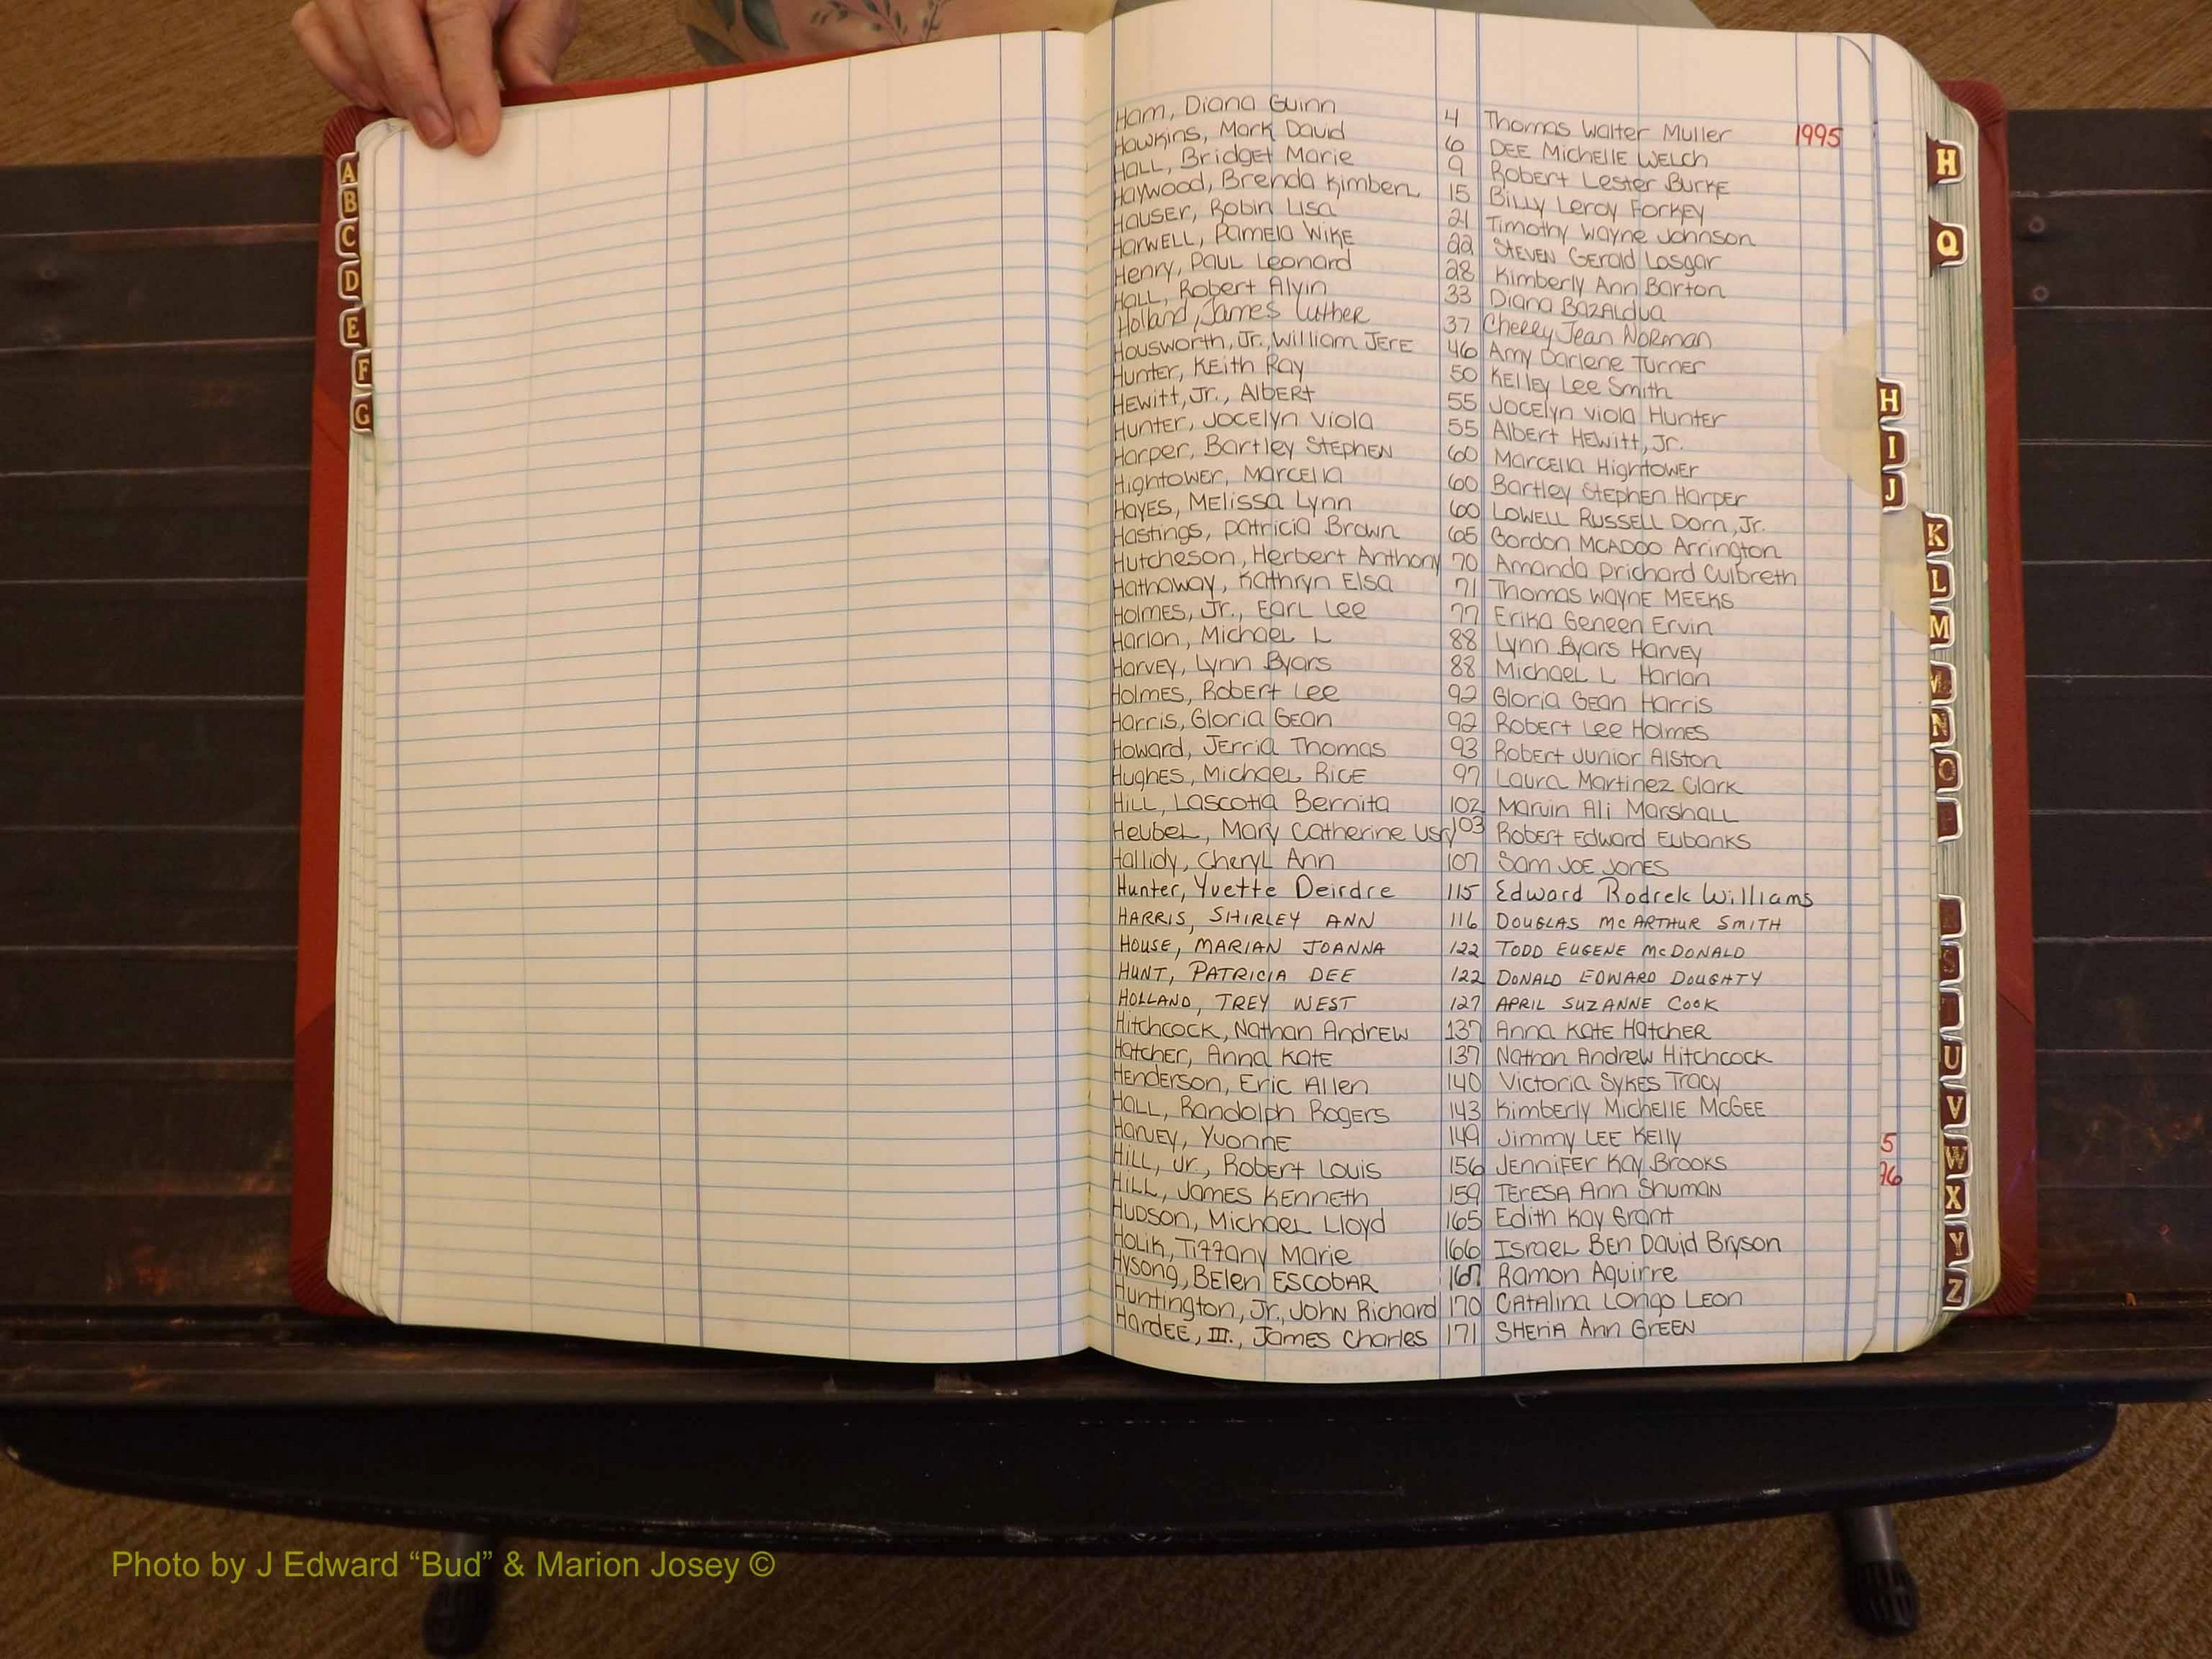 A
B
C
D
E
F
G
Ham, Diana Guinn 4 Thomas Walter Muller 1995
Hawkins, Mark David 6 DEE Michelle Welch
Hall, Bridget Marie 9 Robert Lester Burke
Haywood, Brenda Kimberl 15 Billy Leroy Forkey
Hauser, Robin Lisa 21 Timothy Wayne Johnson
Harwell, Pamela Wike 22 Steven Gerald Losgar
Henry, Paul Leonard 28 Kimberly Ann Barton
Hall, Robert Alvin 33 Diana Bazaldua
Holland, James Luther 37 Cherry Jean Norman
Housworth, Jr., William Jere 46 Amy Darlene Turner
Hunter, Keith Ray 50 Kelley Lee Smith
Hewitt, Jr., Albert 55 Jocelyn Viola Hunter
Hunter, Jocelyn Viola 55 Albert Hewitt, Jr.
Harper, Bartley Stephen 60 Marcella Hightower
Hightower, Marcella 60 Bartley Stephen Harper
Hayes, Melissa Lynn 60 Lowell Russell Dorn, Jr.
Hastings, Patricia Brown 65 Gordon McAdoo Arrington
Hutcheson, Herbert Anthony 70 Amanda Prichard Culbreth
Hathaway, Kathryn Elsa 71 Thomas Wayne Meeks
Holmes, Jr., Earl Lee 77 Erika Geneen Ervin
Harlan, Michael L 88 Lynn Byars Harvey
Harvey, Lynn Byars 88 Michael L Harlan
Holmes, Robert Lee 92 Gloria Gean Harris
Harris, Gloria Gean 92 Robert Lee Holmes
Howard, Jerria Thomas 93 Robert Junior Alston
Hughes, Michael Rice 97 Laura Martinez Clark
Hill, Lascotia Bernita 102 Marvin Ali Marshall
Heubel, Mary Catherine 103 Robert Edward Eubanks
Hallidy, Cheryl Ann 107 Sam Joe Jones
Hunter, Yvette Deirdre 115 Edward Rodrek Williams
HARRIS, SHIRLEY ANN 116 DOUGLAS McARTHUR SMITH
HOUSE, MARIAN JOANNA 122 TODD EUGENE McDONALD
HUNT, PATRICIA DEE 122 DONALD EDWARD DOUGHTY
HOLLAND, TREY WEST 127 APRIL SUZANNE COOK
Hitchcock, Nathan Andrew 137 Anna Kate Hatcher
Hatcher, Anna Kate 137 Nathan Andrew Hitchcock
Henderson, Eric Allen 140 Victoria Sykes Tracy
Hall, Randolph Rogers 143 Kimberly Michelle McGee
Harvey, Yvonne 149 Jimmy Lee Kelly
Hill, Jr., Robert Louis 156 Jennifer Kay Brooks
Hill, James Kenneth 159 Teresa Ann Shuman
Hudson, Michael Lloyd 165 Edith Kay Grant
Holik, Tiffany Marie 166 Israel Ben David Bryson
Hysong, Belen Escobar 167 Ramon Aguirre
Huntington, Jr., John Richard 170 Catalina Longo Leon
Hardee, III., James Charles 171 Sheria Ann Green
H
Q
H
I
J
K
L
M
N
O
S
U
V
W
X
Y
Z
5
96
Photo by J Edward “Bud” & Marion Josey ©